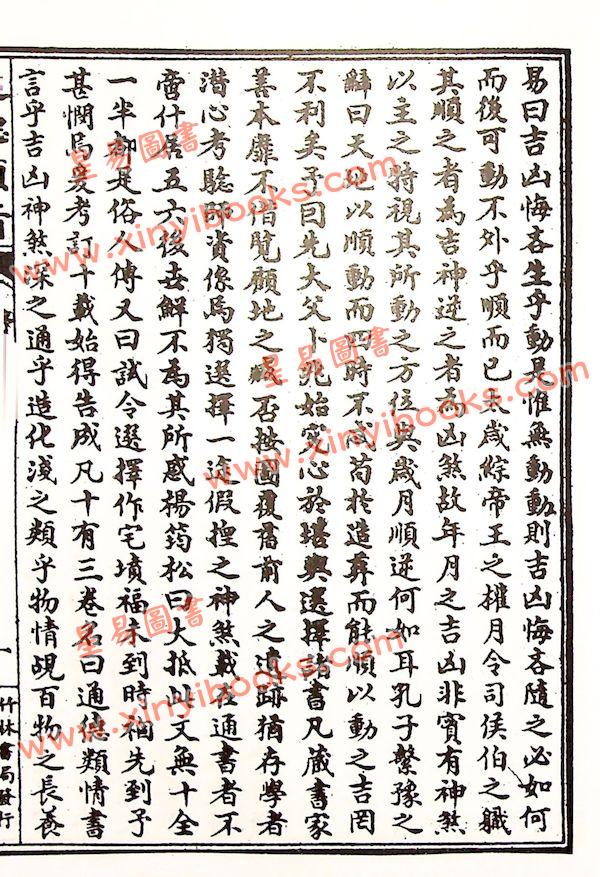 易曰吉凶悔吝生乎動是惟無動動則吉凶悔吝隨之必如何
而後可動不外乎順而已太歲綜帝王之權月令司侯伯之職
其順之者為吉神逆之者為凶煞故年月之吉凶非實有神煞
以主之特視其所動之方位與歲月順逆何如耳孔子繫豫之
辭曰天地以順動而四時不忒苟於造葬而能順以動之吉罔
不利矣予曰先大父卜兆始究心於堪輿選擇諸書凡藏書家
善本靡不借覽顧地之臧否按圖覆舊前人之遺跡猶存學者
潛心考驗師資像焉獨選擇一途假捏之神煞載在通書者不
啻什居五六後世鮮不為其所惑楊筠松曰大抵此文無十全
一半都是俗人傳又曰試令選擇作宅墳福未到時禍先到予
甚憫焉爰考訂十載始得告成凡十有三卷名曰通德類情書
言乎吉凶神煞深之通乎造化淺之類乎物情覘百物之長養
序
一
竹林書局發行
星易圖書
www.xinyibooks.com
星易圖書
www.xinyibooks.com
星易圖書
www.xinyibooks.com